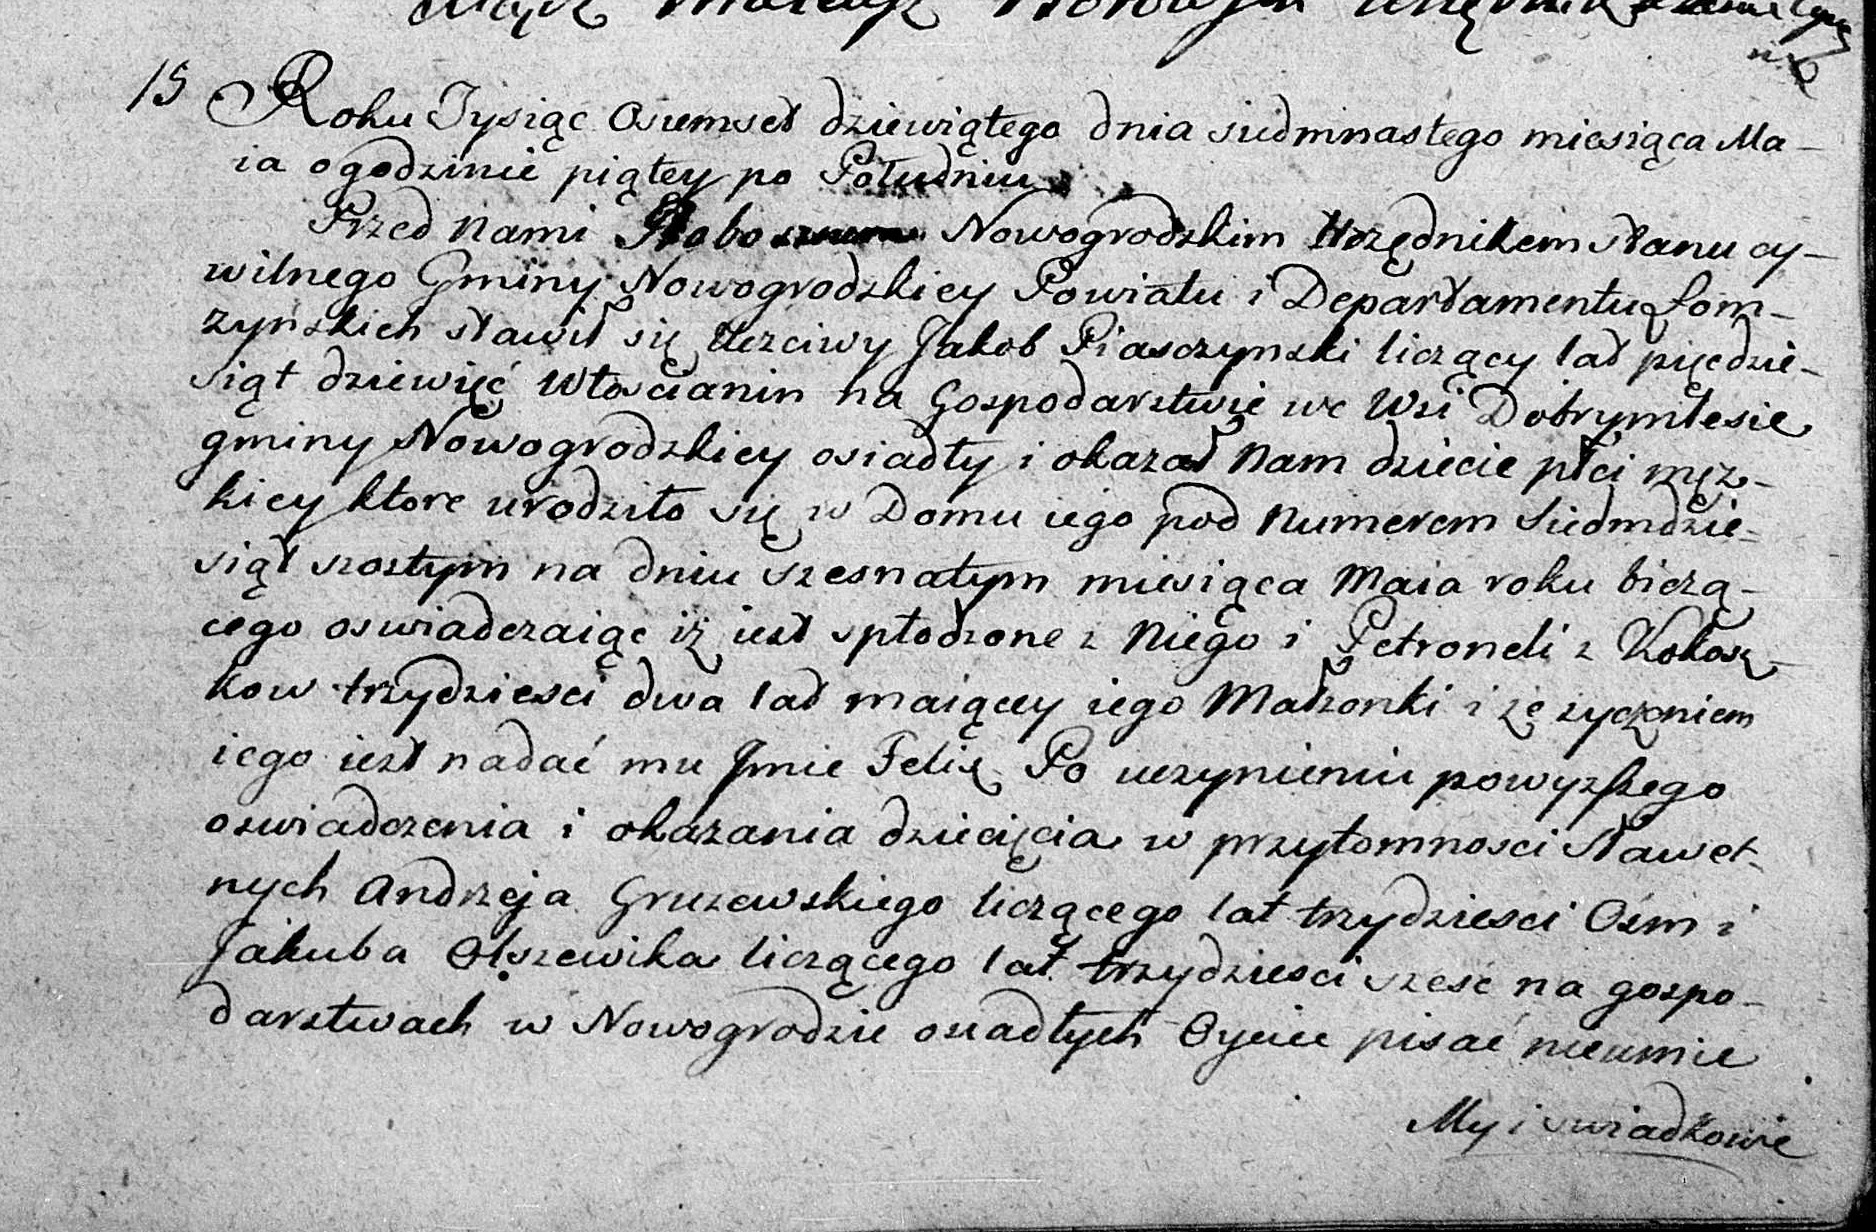 15 Roku Tysiąc Osiemset dziewiątego dnia siedmnastego miesiąca Ma-
ia o godzinie piątey po Południu
Przed Nami Nowogrodzkim Urzędnikiem stanu cy-
wilnego Gminy Nowogrodzkiey Powiatu i Departamentu Łom-
zyńskich stawił się Uczciwy Jakob Piasczynski liczący lat pięcdzie-
siąt dziewięć Włoscianin na Gospodarstwie we Wsi Dobrymlesie
gminy Nowogrodzkiey osiadły i okazał Nam dziecie płci męz-
kiey ktore urodziło się w Domu iego pod Numerem Siedmdzie-
siąt szostym na dniu szesnatym miesiąca Maia roku biezą-
cego oswiadczaiąc iż iest spłodzone z Niego i Petroneli z Kokosz-
kow trzydziesci dwa lat maiącey iego Małzonki i zę zyczeniem
iego iest nadać mu Jmie Felix Po uczynieniu powyzszego
oswiadczenia i okazania dziecięcia w przytomnosci Stawet-
nych Andrzeja Gruzewskiego liczącego lat trzydziesci Ośm i
Jakuba Olszewika liczącego lat trzydziesci szesc na gospo-
darstwach w Nowogrodzie osiadłych Oyciec pisać nieumie
My i swiadkowie